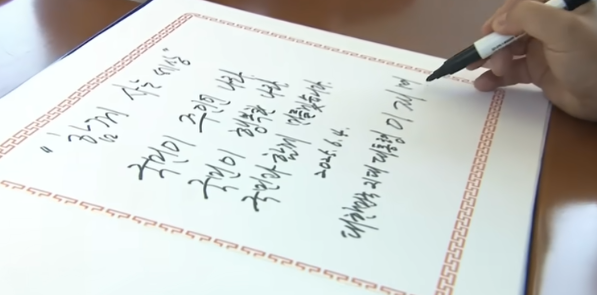 "함께 사는 세상"
국민이 주인인 나라
국민이 행복한 나라
국민과 함께 만들겠습니다.
2025. 6. 4.
대통령 이재